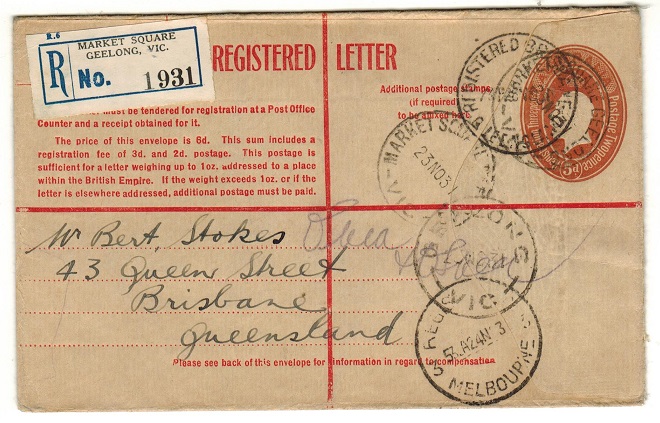 R.6
MARKET SQUARE
GEELONG, VIC.
R No. 1931
REGISTERED LETTER
must be tendered for registration at a Post Office
Counter and a receipt obtained for it.
The price of this envelope is 6d. This sum includes a
registration fee of 3d. and 2d. postage. This postage is
sufficient for a letter weighing up to 1oz. addressed to a place
within the British Empire. If the weight exceeds 1oz. or if the
letter is elsewhere addressed, additional postage must be paid.
Additional postage stamps
(if required)
to be affixed here.
REGISTERED
Postage Twopence
5d
MARKET SQUARE
23 NO 3
VIC
Mr Bert. Stokes
43 Queen Street
Brisbane
Queensland
GEELONG
VIC
MELBOURNE
Please see back of this envelope for information in regard to compensation